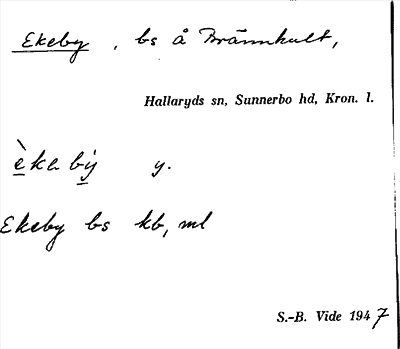 Ekeby, bs å Brännhult,
Hallaryds sn, Sunnerbo hd, Kron. l.
èka bý y.
Ekeby bs kb, ml
S.-B. Vide 1947